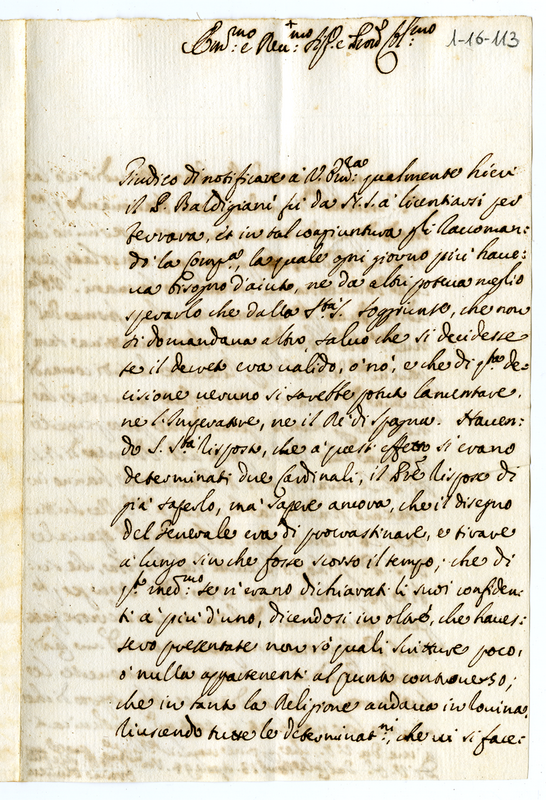 Em:mo e Reu:mo Sig.r e Pron Col:mo
1-16-113
Giudico di notificare à V. Em:za qualmente hieri
il P. Baldigiani fù da N. S. à licentiarsi per
Ferrara, et in tal congiuntura gli raccoman:
dò la Comp.a, la quale ogni giorno più haue:
ua bisogno d'aiuto, ne da altri poteua meglio
sperarlo che dalla S.tà S. soggiunto, che non
si domandaua altro, saluo che si decidesse
se il decreto era ualido, ò nò, e che di q.ta de:
cisione ueruno si sarebbe potuto lamentare,
ne l'Imperatore, ne il Rè di Spagna. Hauen:
do S. S.tà risposto, che à quest' effetto si erano
determinati due Cardinali, il P.re rispose di
già saperlo, mà sapere ancora, che il disegno
del Generale era di procrastinare, e tirare
à lungo sin che fosse scorso il tempo; che di
q.to med:mo se n'erano dichiarati li suoi confiden:
ti à più d'uno, dicendosi in oltre, che haues:
sero presentate non sò quali scritture poco,
ò nulla appartenenti al punto controuerso;
che in tanto la Religione andaua in rouina,
riuscendo tutte le determinat.ni, che ui si face: